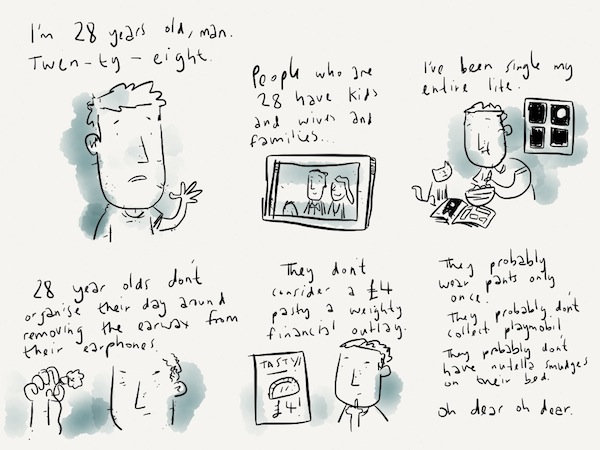 I'm 28 years old, man.
Twen-ty-eight.
People who are
28 have kids
and wives and
families...
I've been single my
entire life.
28 year olds don't
organise their day around
removing the earwax from
their earphones.
They don't
consider a £4
pasty a weighty
financial outlay.
TASTY!!
£4
They probably
wear pants only
once.
They probably don't
collect playmobil
They probably don't
have nutella smudges
on their bed.
oh dear oh dear.